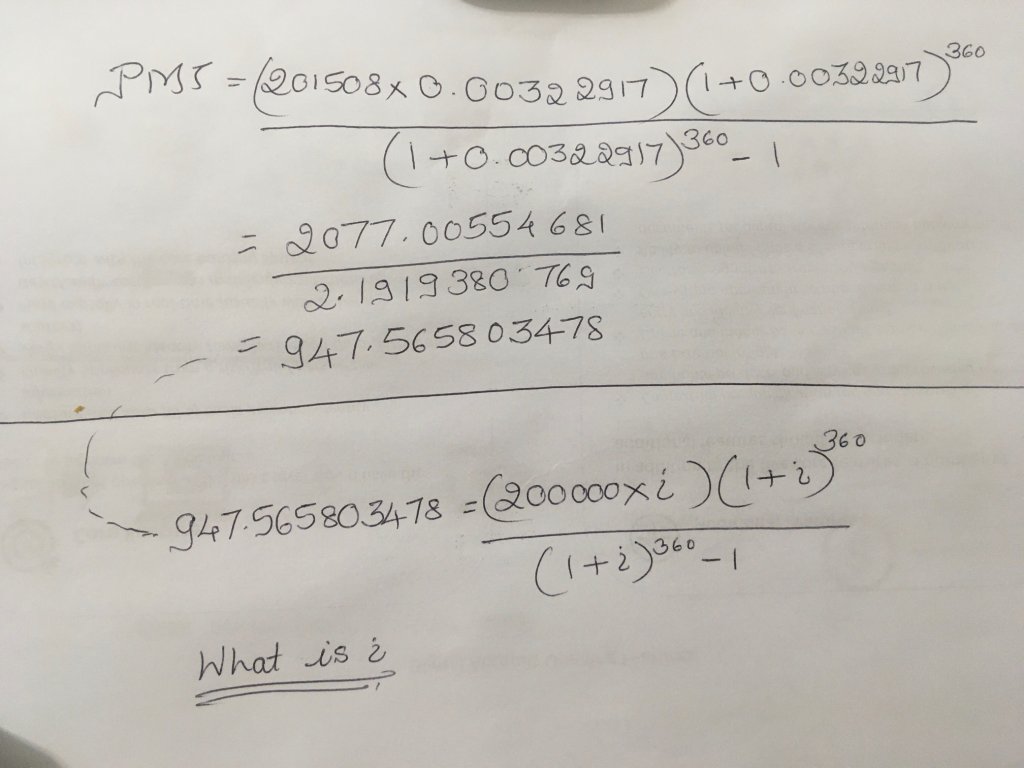 PMT = (201508 x 0.00322917)(1+0.00322917)^360
(1+0.00322917)^360 - 1
= 2077.00554681
2.1919380769
= 947.565803478
947.565803478 = (200000 x i)(1+i)^360
(1+i)^360 - 1
What is i